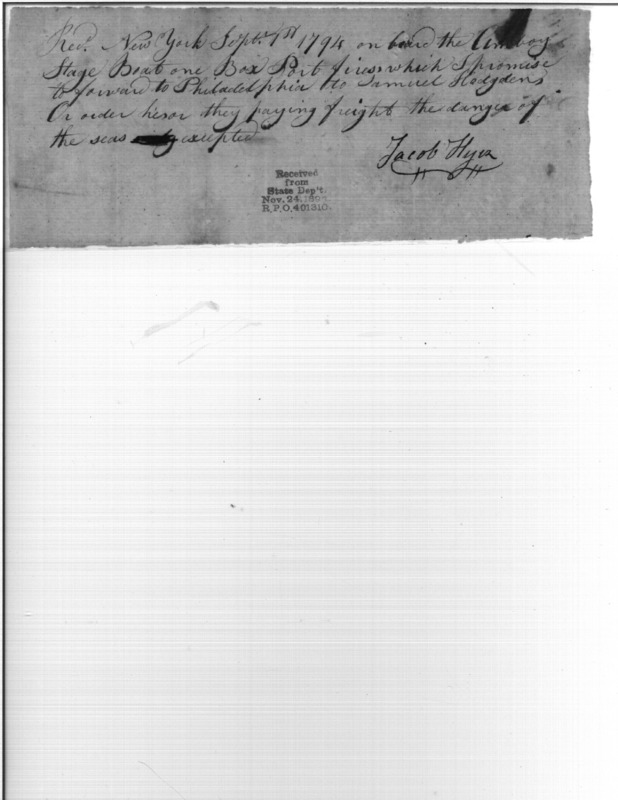 Recd. New York Sept. 1st 1794 on board the Amboy
Stage Boat one Box Port fires which I promise
to forward to Philadelphia to Samuel Hodgdens
Or order he or they paying freight the danger of
the seas excepted
Jacob Hyer
Received
from
State Dep't.
Nov. 24,
R.P.O. 401310.